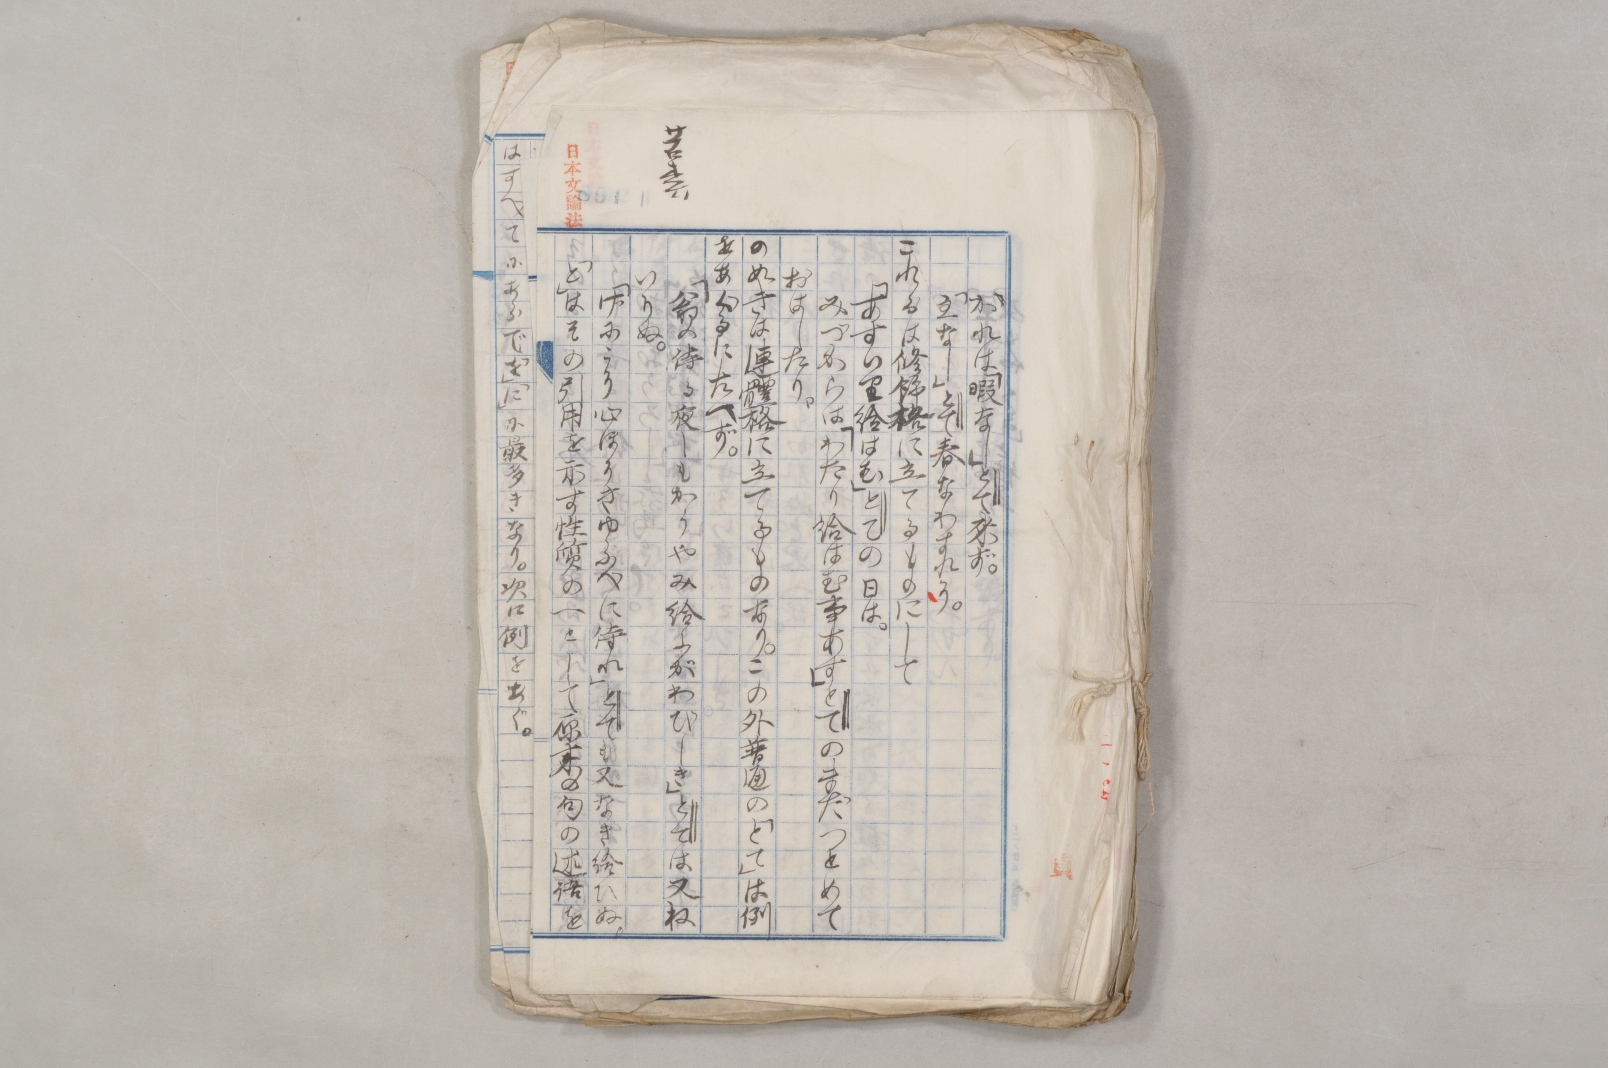 かれは「暇なし」とて来ず。
「主なし」とて春なわすれそ。
これらは修飾格に立てるものにして
「あすい里給はむ」とての日は。
みづからは「わたり給はむ事あす」とてのまだつとめて
おはしたり。
の如きは連體格に立てるものあり。この外普通の「とて」は例
をあぐるにたへず。
「翁の侍る夜しもかうやみ給ふがわびしき」とては又ね
いりぬ。
ゆふべに侍れ」とても又なき給ひぬ。
「と」はその引用を示す性質の一として原来の句の述語を
はすべて
最多きなり。次に例を出ぐ。
日本文論法